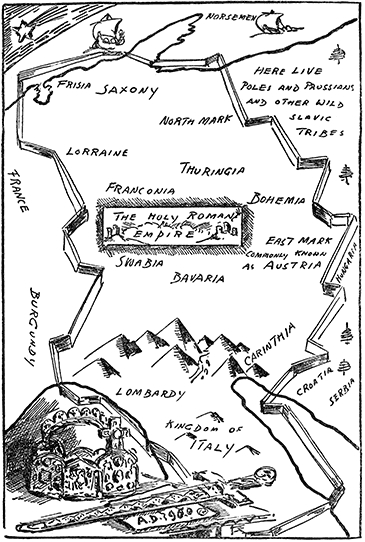 NORSEMEN
HERE LIVE
POLES AND PRUSSIANS
AND OTHER WILD
SLAVIC
TRIBES
FRISIA
SAXONY
NORTH MARK
LORRAINE
THURINGIA
FRANCE
FRANCONIA
BOHEMIA
THE HOLY ROMAN
EMPIRE
EAST MARK
COMMONLY KNOWN
AS AUSTRIA
HUNGARIA
SWABIA
BAVARIA
BURGUNDY
CARINTHIA
LOMBARDY
CROATIA
SERBIA
KINGDOM OF
ITALY
A.D.